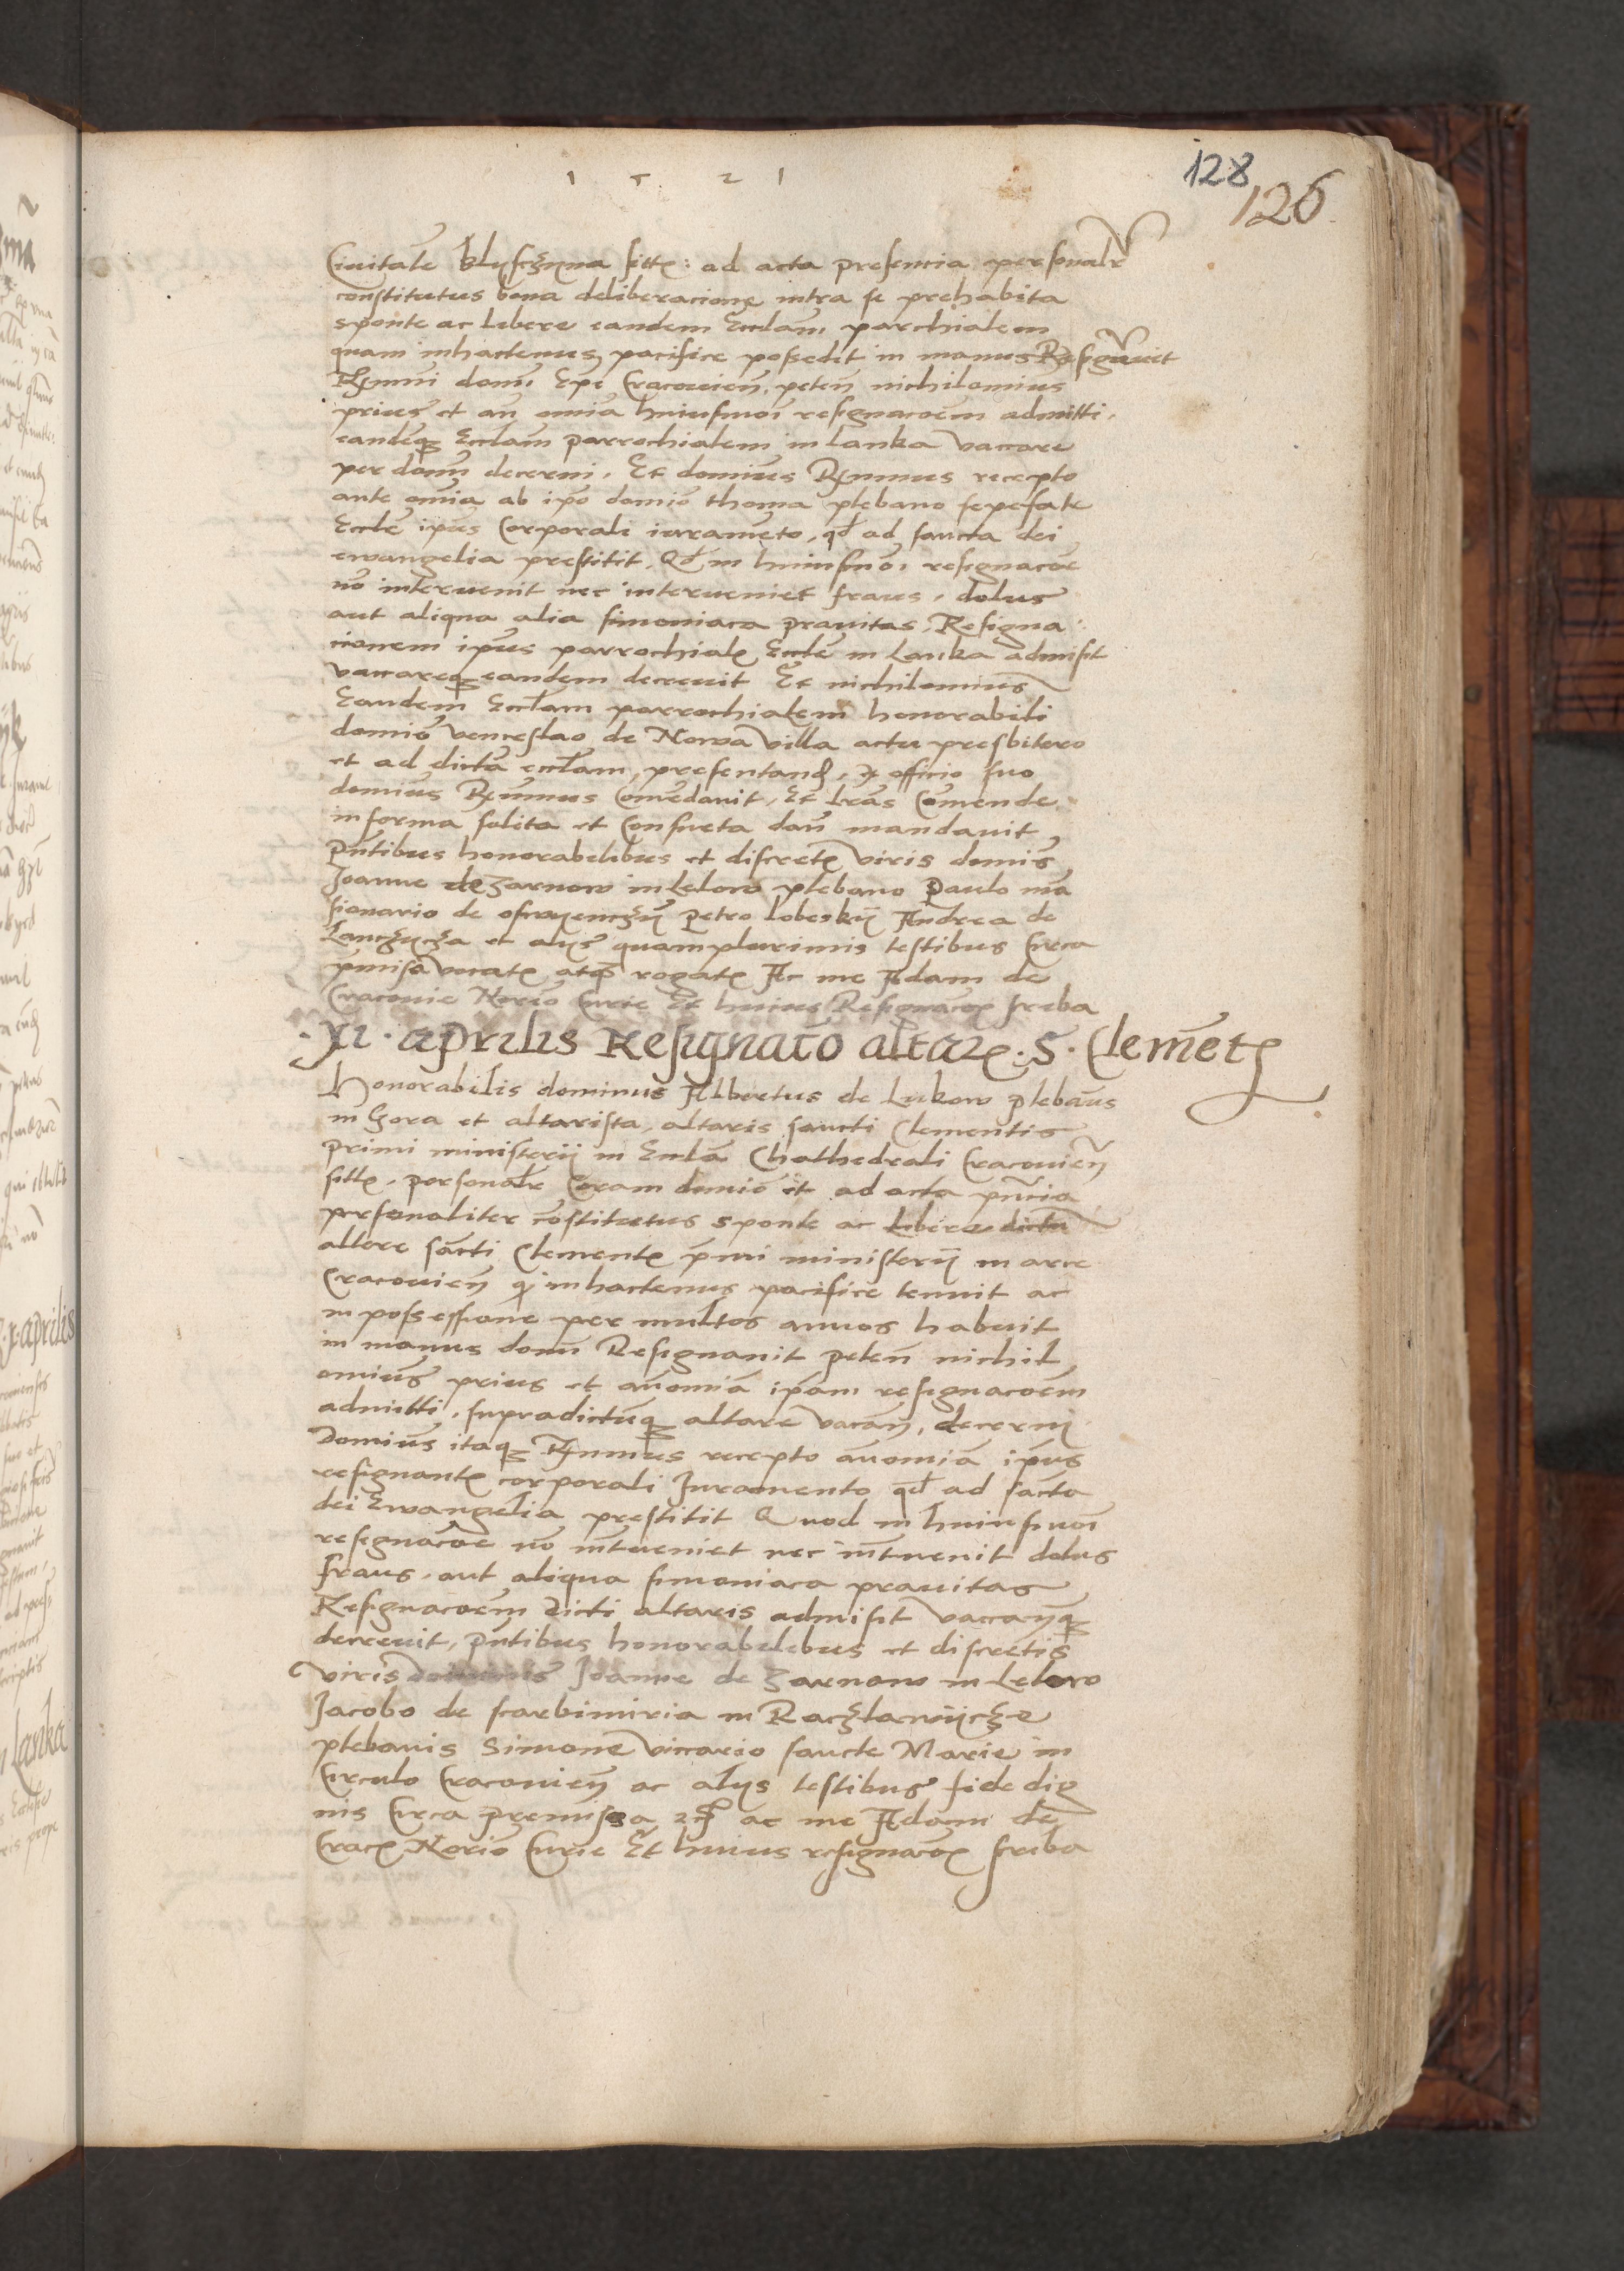 1521
128
126
Ciuitatē klyſczyna ſitt: ad acta preſencia perſonalr
constitutus bona deliberacione intra ſe prehabita
sponte ac libere eandem Ecclam parchialem
quam inhactenus pacifice poſsedit in manus Reſignauit
Rmi domi Epi Cracouien. peteñ nichilomius
prius et añ omia huiuſmoi reſignacoem admitti.
eandeq Ecclam parrochialem in lanka vaccare
per domi decerni. Et domius Rmus recepto
ante omia ab ipo domio thoma plebano ſepefate
Eccle ipius Corporali iurameto, qd ad ſancta dei
ewangelia preſtitit. Qd in huiuſmoi reſignacoe
no interuenit nec interueniet fraus, dolus
aut aliqua alia ſimoniaca prauitas, Reſigna
cionem ipius parrochialis Eccle in Lanka admiſit
vaccareq eandem decreuit Et nichilomius
Eandem Ecclam parrochialem honorabili
domio venceſlao de Nowa villa actu preſbitero
et ad dicta ecclam preſentand, ex officio ſuo
domius Rmus Comedauit, Et lras Comende
in forma ſolita et Conſueta dari mandauit,
Pntibus honorabilibus et diſcretis viris domis
Joanne de Zarnow in Lelow plebano Paulo ma
ſionario de oſwyenczy Petro lobesky Andrea de
Lanczycza et alys quamplurimis testibus Circa
pmiſa vocatis atq rogatis Ac me Adam de
Cracouie Norio Curie Et huius Reſignacois ſcriba
. XI . aprilis Reſignatō altaris . S . Clemētis
Honorabilis dominus Albertus de Lukow plebanus
in Gora et altariſta, altaris ſancti Clementis
primi miniſterij in Eccla Chathedrali Cracouien
ſitti, perſonalr Coram domio et ad acta pncia
perſonaliter coſtitutus sponte ac libere dictu
altare ſancti Clementis pmi miniſterij in arce
Cracouien q inhactenus pacifice tenuit ac
in poſseſſione per multos annos habuit
in manus domi Reſignauit peteñ nichil
omius prius et añ omia ipam reſignacoem
admitti, ſupradictuq altare vacañ, decerni
Domius itaq Rmus recepto añ omia ipius
reſignantis corporali Juramento qd ad ſancta
dei Ewangelia preſtitit Quod in huiuſmoi
reſignacoe no interueniet nec interuenit dolus
fraus, aut aliqua ſimoniaca prauitas
Reſignacoem dicti altaris admiſit vaccañq
decreuit, pntibus honorabilibus et diſcretis
viris dominis Joanne de Zarnow in Lelow
Jacobo de ſcarbimiria in Raczlawicze
plebanis Simone viccario ſancte Marie in
Circulo Cracouien ac alys teſtibus fide dig
nis Circa premiſsa ac me Adam de
Crac Norio Curie Et huius reſignacois ſcriba